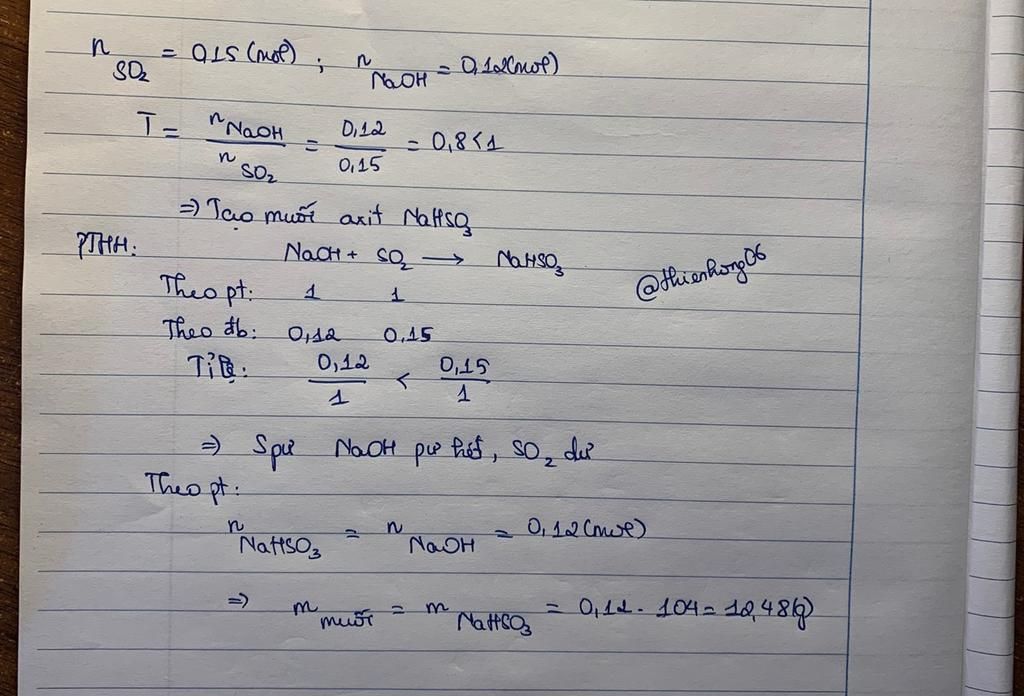 n SO₂ = 0,15 (mol) ; n NaOH = 0,12 (mol)
T = n NaOH / n SO₂ = 0,12 / 0,15 = 0,8 < 1
⇒ Tạo muối axit NaHSO₃
PTHH: NaOH + SO₂ → NaHSO₃
@thienhong06
Theo pt: 1 1
Theo đb: 0,12 0,15
Tỉ lệ: 0,12 / 1 < 0,15 / 1
⇒ Spư NaOH pư hết, SO₂ dư
Theo pt:
n NaHSO₃ = n NaOH = 0,12 (mol)
⇒ m muối = m NaHSO₃ = 0,12 . 104 = 12,48 (g)